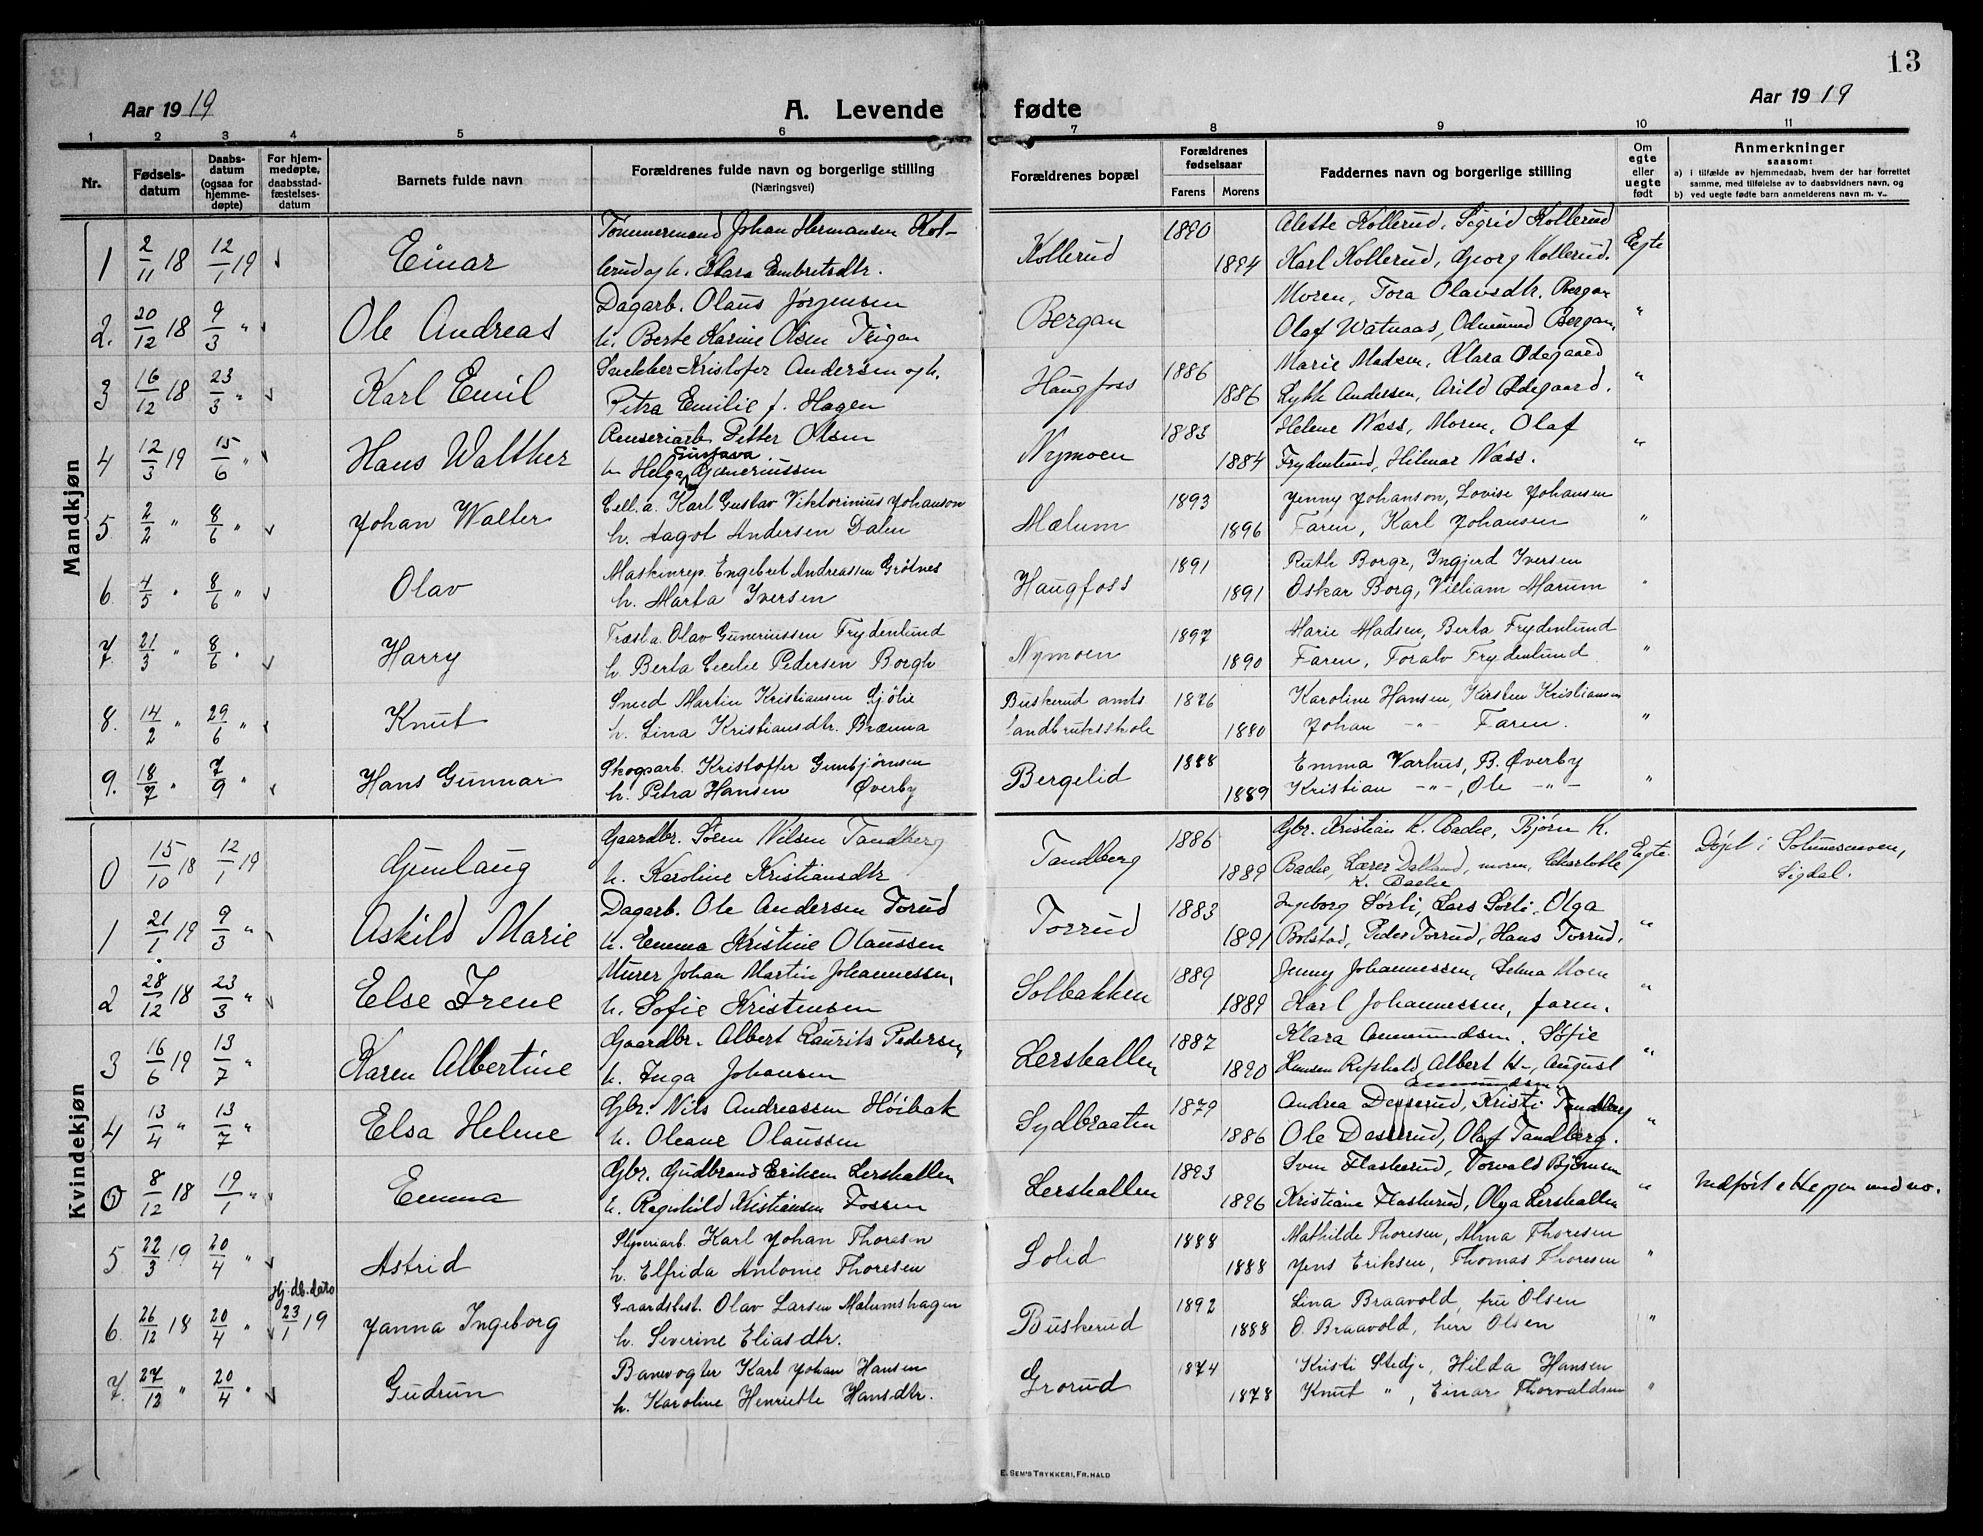 13
Aar 1919
A. Levende fødte
Aar 1919
1 2 3 4 5 6 7 8 9 10 11
Nr.
Fødsels-datum
Daabs-datum (ogsaa for hjemme-døpte)
For hjem-medøpte, daabsstad-fæstelses-datum
Barnets fulde navn
Forældrenes fulde navn og borgerlige stilling (Næringsvei)
Forældrenes bopæl
Forældrenes fødselsaar
Farens Morens
Faddernes navn og borgerlige stilling
Om egte eller uegte født
Anmerkninger
saasom:
a) i tilfælde av hjemmedaab, hvem der har forrettet samme, med tilføielse av to daabsvidners navn, og
b) ved uegte født barn anmelderens navn m. v..
Mandkjøn
1 2/11 18 12/1 19 Einar Tømmermand Johan Hermansen Kol- Kollerud 1890 Alette Kollerud, Sigrid Kollerud Egte
lerud og h. Klara Embretsdtr. 1894 Karl Kollerud, Georg Kollerud.
2. 20/12 18 9/3 " Ole Andreas Dagarb. Olaus Jørgensen Bergan Moren, Tora Olavsdtr. Bergan "
h. Berte Karine Olsen Olaf Watnaas, Odmund Bergan.
3 16/12 18 23/3 " Karl Emil Snekker Kristofer Andersen og h. Haugfoss 1886 Marie Madsen, Klara Ødegaard "
Petra Emilie f. Hagen 1886 Lykke Andersen, Arild Ødegaard.
4 12/3 19 15/6 " Hans Walther Renseriarb. Petter Olsen Nymoen 1883 Helene Næss, Moren, Olaf "
h. Helga Gustava Guneriussen 1884 Frydenlund, Hilmar Næss.
5 2/2 " 8/6 " Johan Walter Cell.a. Karl Gustav Viktorinius Johanson Mælum 1893 Jenny Johanson, Lovise Johansen "
h. Aagot Andersen Dalen 1896 Faren, Karl Johansen
6. 4/5 " 8/6 " Olav Maskinrep. Engebret Andreassen Grøtnes Haugfoss 1891 Ruth Borge, Ingjerd Iversen "
h. Marta Iversen 1891 Oskar Borg, William Marum
7. 21/3 " 8/6 " Harry Træsl.a. Olav Guneriussen Frydenlund Nymoen 1897 Marie Madsen, Berta Frydenlund "
h. Berta Cecilie Pedersen Borgh 1890 Faren, Toralv Frydenlund
8. 14/2 " 29/6 " Knut Smed Martin Kristiansen Sjølie Buskerud amts 1876 Karoline Hansen, Kirsten Kristiansen "
h. Lina Kristiansdtr. Brænna landbruksskole 1880 Johan -"- Faren.
9. 18/7 " 7/9 " Hans Gunnar Skogsarb. Kristoffer Gunbjørnsen Bergelid 1888 Emma Varhus, B. Øverby "
h. Petra Hansen Øverby 1889 Kristian -"-, Ole -"-
Kvindekjøn
0 15/10 18 12/1 19 Gunlaug Gaardbr. Søren Nilsen Tandberg Tandberg 1886 Gbr. Kristian K. Bache, Bjørn K. Egte. Døpt i Solumsmoen,
h. Karoline Kristiansdtr 1889 Bache, Lærer Dalland, moren, Charlotte K. Bache Sigdal.
1 21/1 19 9/3 " Askild Marie Dagarb. Ole Andersen Torud Torrud 1883 Ingeborg Sørli, Lars Sørli, Olga "
h. Emma Kristine Olaussen 1891 Bolstad, Peder Torrud, Hans Torrud.
2 28/12 18 23/3 " Else Irene Murer Johan Martin Johannessen, Solbakken 1889 Jenny Johannessen, Selma Moen "
h. Sofie Kristensen 1889 Karl Johannessen, faren.
3 16/6 19 13/7 " Karen Albertine Gaardbr. Albert Laurits Pedersen, Lerskallen 1887 Klara Ammundsen, Sofie "
h. Inga Johansen 1890 Albert August
Ammundsen
4 13/4 " 13/7 " Elsa Helene Gbr. Nils Andreassen Høibak Sydbraaten 1879 Andrea Desserud, Kristi Tandberg "
h. Oleane Olaussen 1886 Ole Desserud, Olaf Tandberg.
0 8/12 18 19/1 " Emma Gbr. Gudbrand Eriksen Lerskallen Lerskallen 1893 Sven Flaskerud, Torvald Bjørnsen " Indført efter
h. Ragnhild Kristiansen Fossen 1896 Kristiane Flaskerud, Olga Lerskallen
5 22/3 19 20/4 " Astrid Sliperiarb. Karl Johan Thoresen Solid 1888 Mathilde Thoresen, Alma Thoresen "
h. Elfrida Antonie Thoresen 1888 Jens Eriksen, Thomas Thoresen
Hj. db. dato
6. 26/12 18 20/4 " 23/1 19 Janna Ingeborg Gaardsbest. Olav Larsen Mælumshagen Buskerud 1892 Lina Braavold, fru Olsen "
h. Severine Eliasdtr. 1888 O. Braavold, herr Olsen
7. 27/12 " 20/4 " Gudrun Banevogter Karl Johan Hansen Grorud 1874 Kristi Stedje, Hilda Hansen "
h. Karoline Henriette Hansdtr. 1878 Knut ", Einar Thorvaldsen
E. SEM'S TRYKKERI, FR.HALD